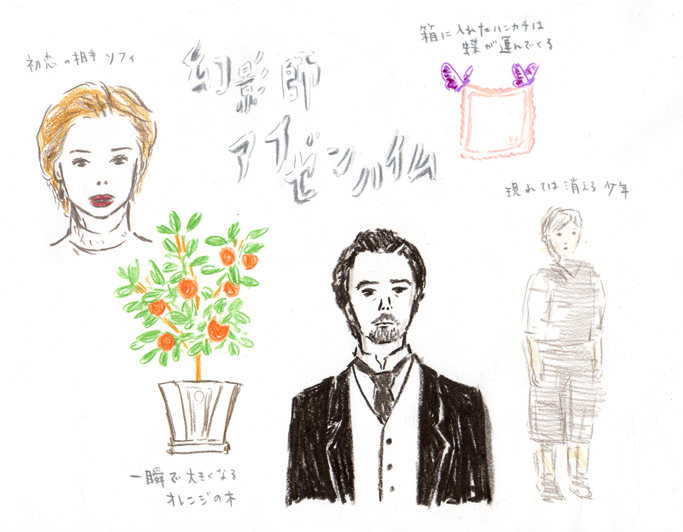 初恋の相手 ソフィ
幻影師
アイゼンハイム
箱に入れたハンカチは
蝶が運んでくる
現れては消える少年
一瞬で大きくなる
オレンジの木